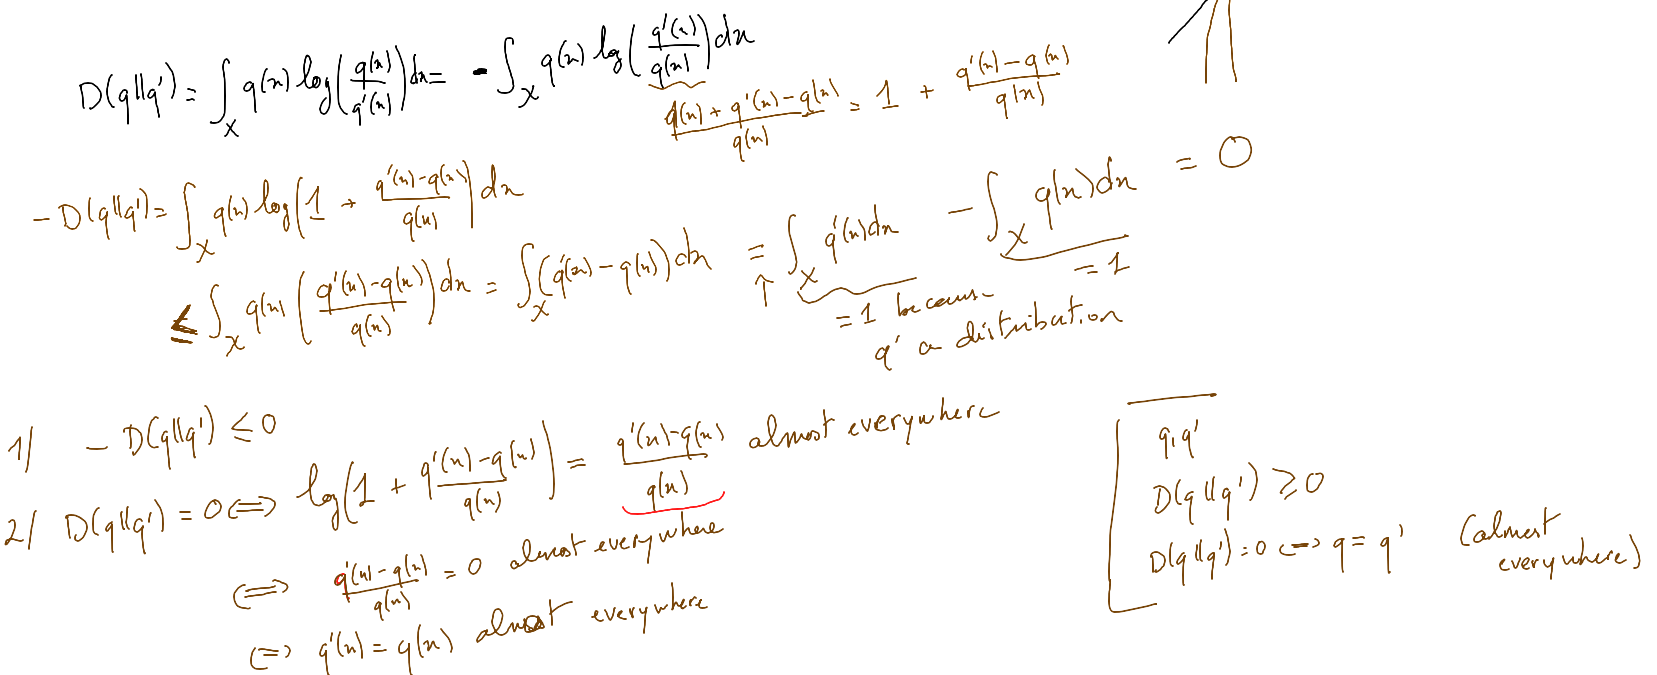 D(q||q') = ∫_X q(x) log(q(x)/q'(x)) dx = - ∫_X q(x) log(q'(x)/q(x)) dx
(q(x) + q'(x) - q(x))/q(x) = 1 + (q'(x) - q(x))/q(x)
- D(q||q') = ∫_X q(x) log(1 + (q'(x) - q(x))/q(x)) dx
≤ ∫_X q(x) ((q'(x) - q(x))/q(x)) dx = ∫_X (q'(x) - q(x)) dx = ∫_X q'(x) dx - ∫_X q(x) dx = 0
↑
= 1 because
q' a distribution
= 1
1/ - D(q||q') ≤ 0
2/ D(q||q') = 0 ⟺ log(1 + (q'(x) - q(x))/q(x)) = (q'(x) - q(x))/q(x) almost everywhere
⟺ (q'(x) - q(x))/q(x) = 0 almost everywhere
⟺ q'(x) = q(x) almost everywhere
q, q'
D(q||q') ≥ 0
D(q||q') = 0 ⟺ q = q' (almost
everywhere)